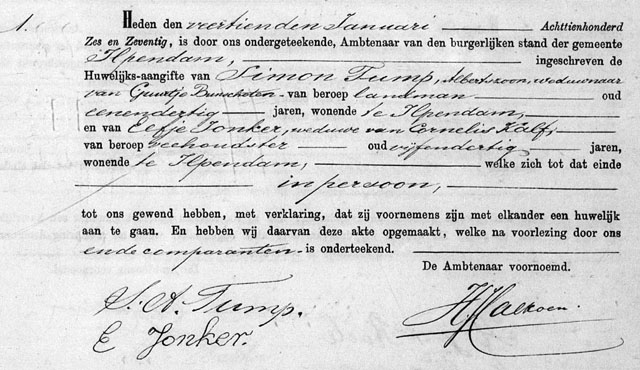 1. Heden den veertienden Januari Achttienhonderd
Zes en Zeventig, is door ons ondergeteekende, Ambtenaar van den burgerlijken stand der gemeente
Ilpendam, ingeschreven de
Huwelijks-aangifte van Simon Tump, Albertszoon, weduwnaar
van Guurtje Bunschoten van beroep landman oud
eenendertig jaren, wonende te Ilpendam,
en van Eefje Jonker, weduwe van Cornelis Kalf,
van beroep veehoudster oud vijfendertig jaren,
wonende te Ilpendam, welke zich tot dat einde
in persoon,
tot ons gewend hebben, met verklaring, dat zij voornemens zijn met elkander een huwelijk
aan te gaan. En hebben wij daarvan deze akte opgemaakt, welke na voorlezing door ons
ende comparanten is onderteekend.
De Ambtenaar voornoemd.
S. A. Tump.
E Jonker.